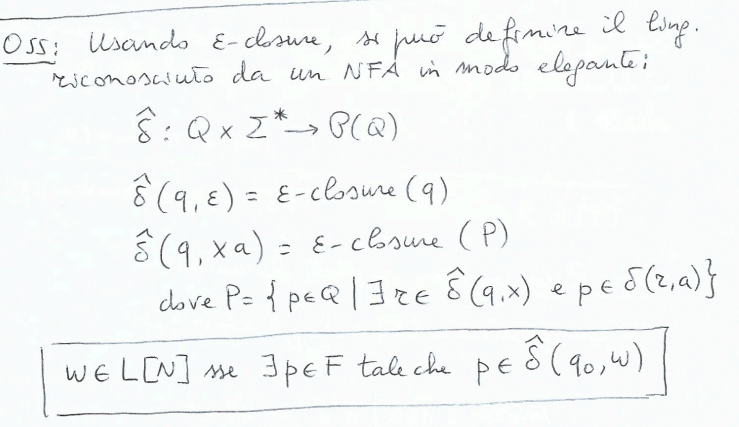 Oss: Usando ε-closure, si può definire il ling.
riconosciuto da un NFA in modo elegante:
δ̂ : Q x Σ* → P(Q)
δ̂(q, ε) = ε-closure(q)
δ̂(q, xa) = ε-closure(P)
dove P = {p∈Q | ∃r∈ δ̂(q,x) e p∈ δ(r,a)}
w∈L[N] sse ∃p∈F tale che p∈ δ̂(q₀,w)